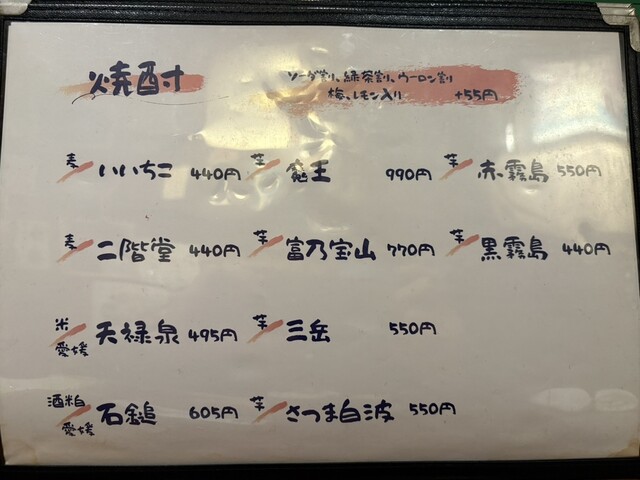 焼酎
ソーダ割り、緑茶割り、ウーロン割り
梅、レモン入り +55円
麦 いいちこ 440円 芋 魔王 990円 芋 赤霧島 550円
麦 二階堂 440円 芋 富乃宝山 770円 芋 黒霧島 440円
米 愛媛 天禄泉 495円 芋 三岳 550円
酒粕 愛媛 石鎚 605円 芋 さつま白波 550円